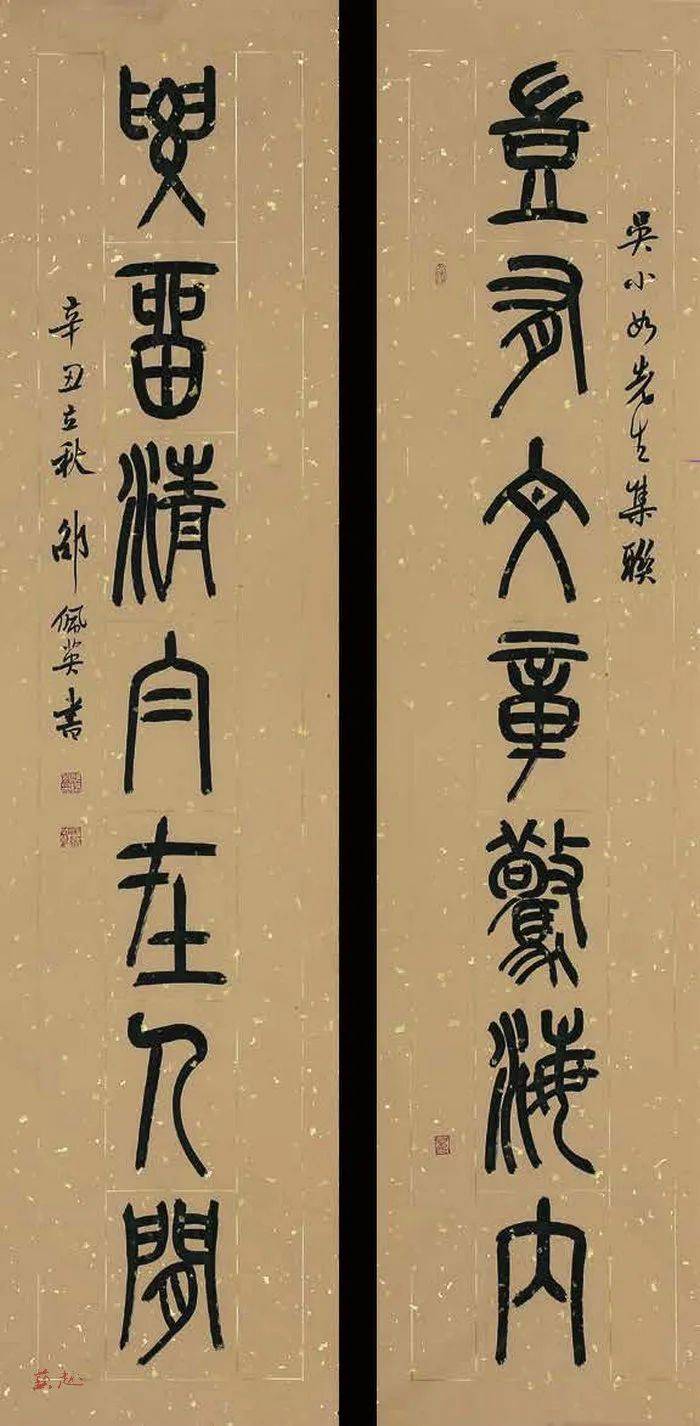 吳小如先生集聯
豈有文章驚海內
要留清白在人間
辛丑立秋 邵佩英書